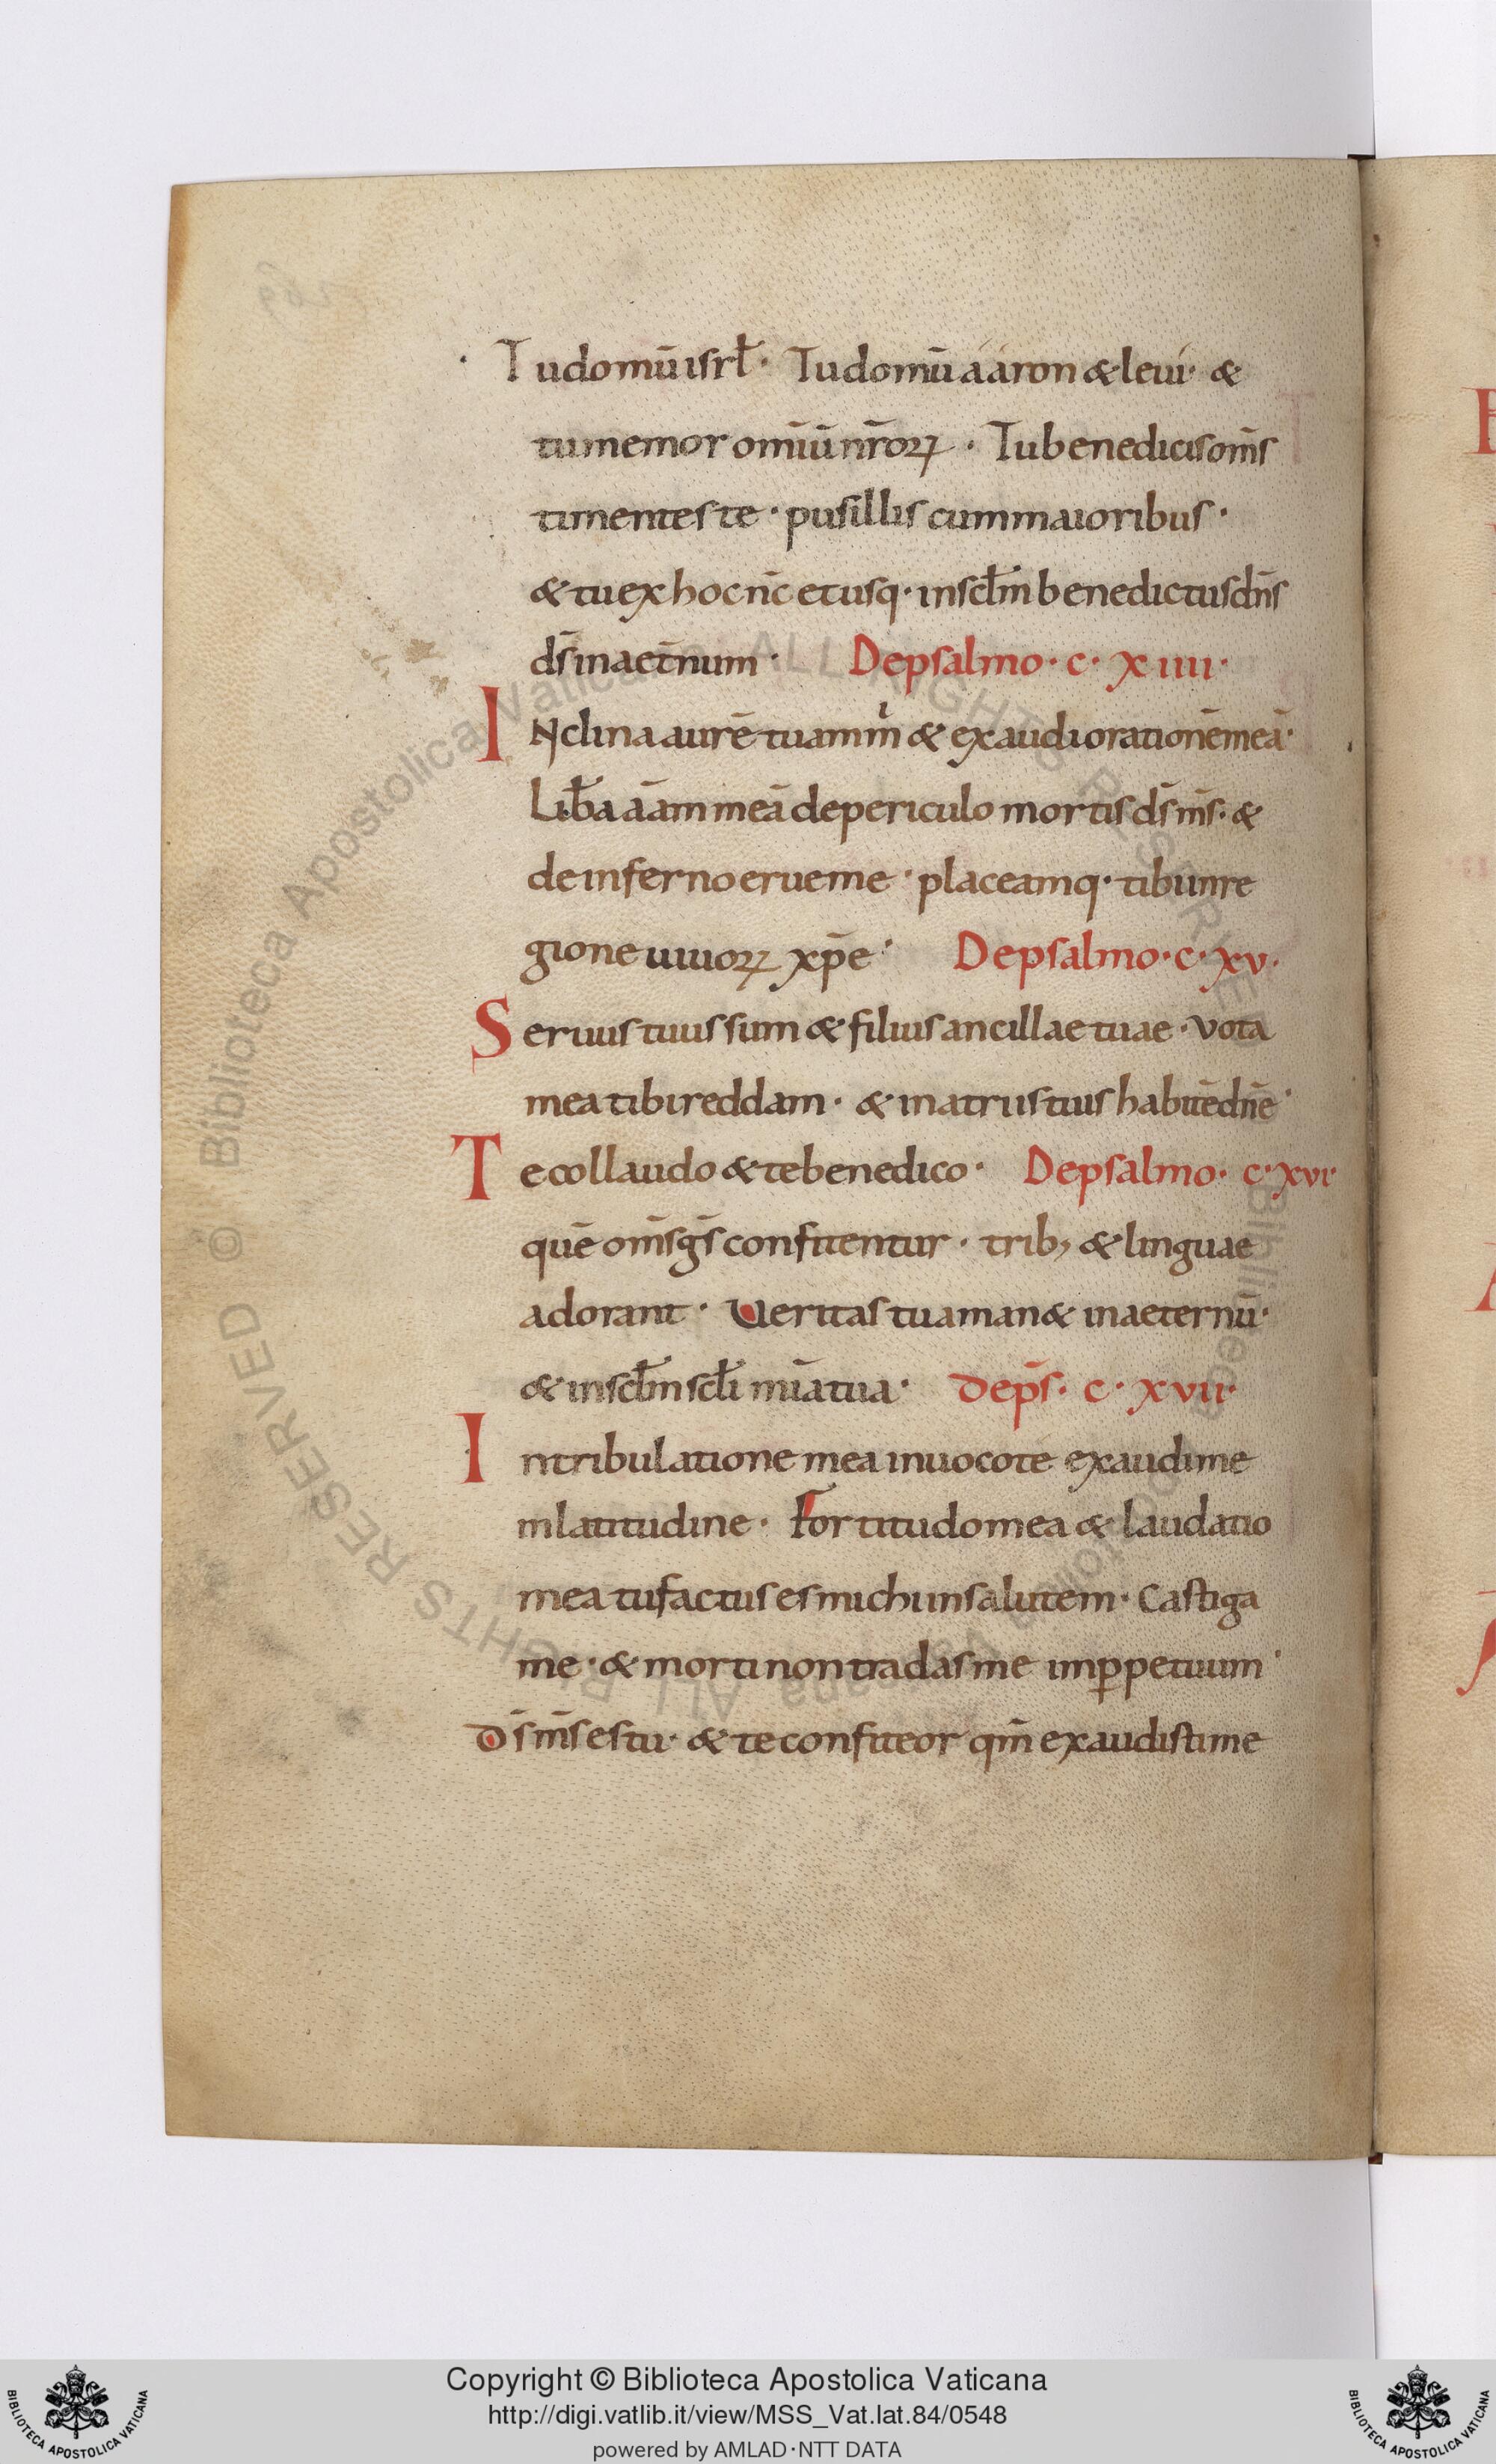 · Tu domū isrł · Tu domū aaron & leui · &
tu memor omīū nr̄oꝝ · Tu benedicis om̄s
timentes te · pusillis cum maioribus ·
& tu ex hoc nc̄ et usq · in scłm benedictus dn̄s
ds̄ in aet̄num · De psalmo · c · xiiii ·
INclina aurē tuam m̄ & exaudi orationē meā ·
Lib̄a aām meā de periculo mortis ds̄ ms̄ · &
de inferno erue me · placeamq · tibi in re
gione uiuoꝝ xp̄e · De psalmo · c · xv ·
Seruus tuus sum & filius ancillae tuae · vota
mea tibi reddam · & in atriis tuis habitē dn̄e ·
Te collaudo & te benedico · De psalmo · c · xvi ·
quē om̄s gs̄ confitentur · trib; & linguae
adorant · Ueritas tua man& in aeternū ·
& in scłm scłi mīa tua · De ps̄ · c · xvii ·
In tribulatione mea inuoco te exaudi me
in latitudine · Fortitudo mea & laudatio
mea tu factus es michi in salutem · Castiga
me · & morti non tradas me in ꝑpetuum ·
Ds̄ ms̄ es tu · & te confiteor qm̄ exaudisti me
Copyright © Biblioteca Apostolica Vaticana
http://digi.vatlib.it/view/MSS_Vat.lat.84/0548
powered by AMLAD·NTT DATA
BIBLIOTECA APOSTOLICA VATICANA
BIBLIOTECA APOSTOLICA VATICANA